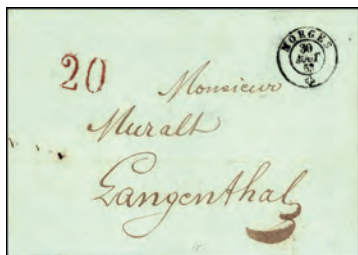 20
MORGES
30
AOUT
Monsieur
Muralt
Langenthal